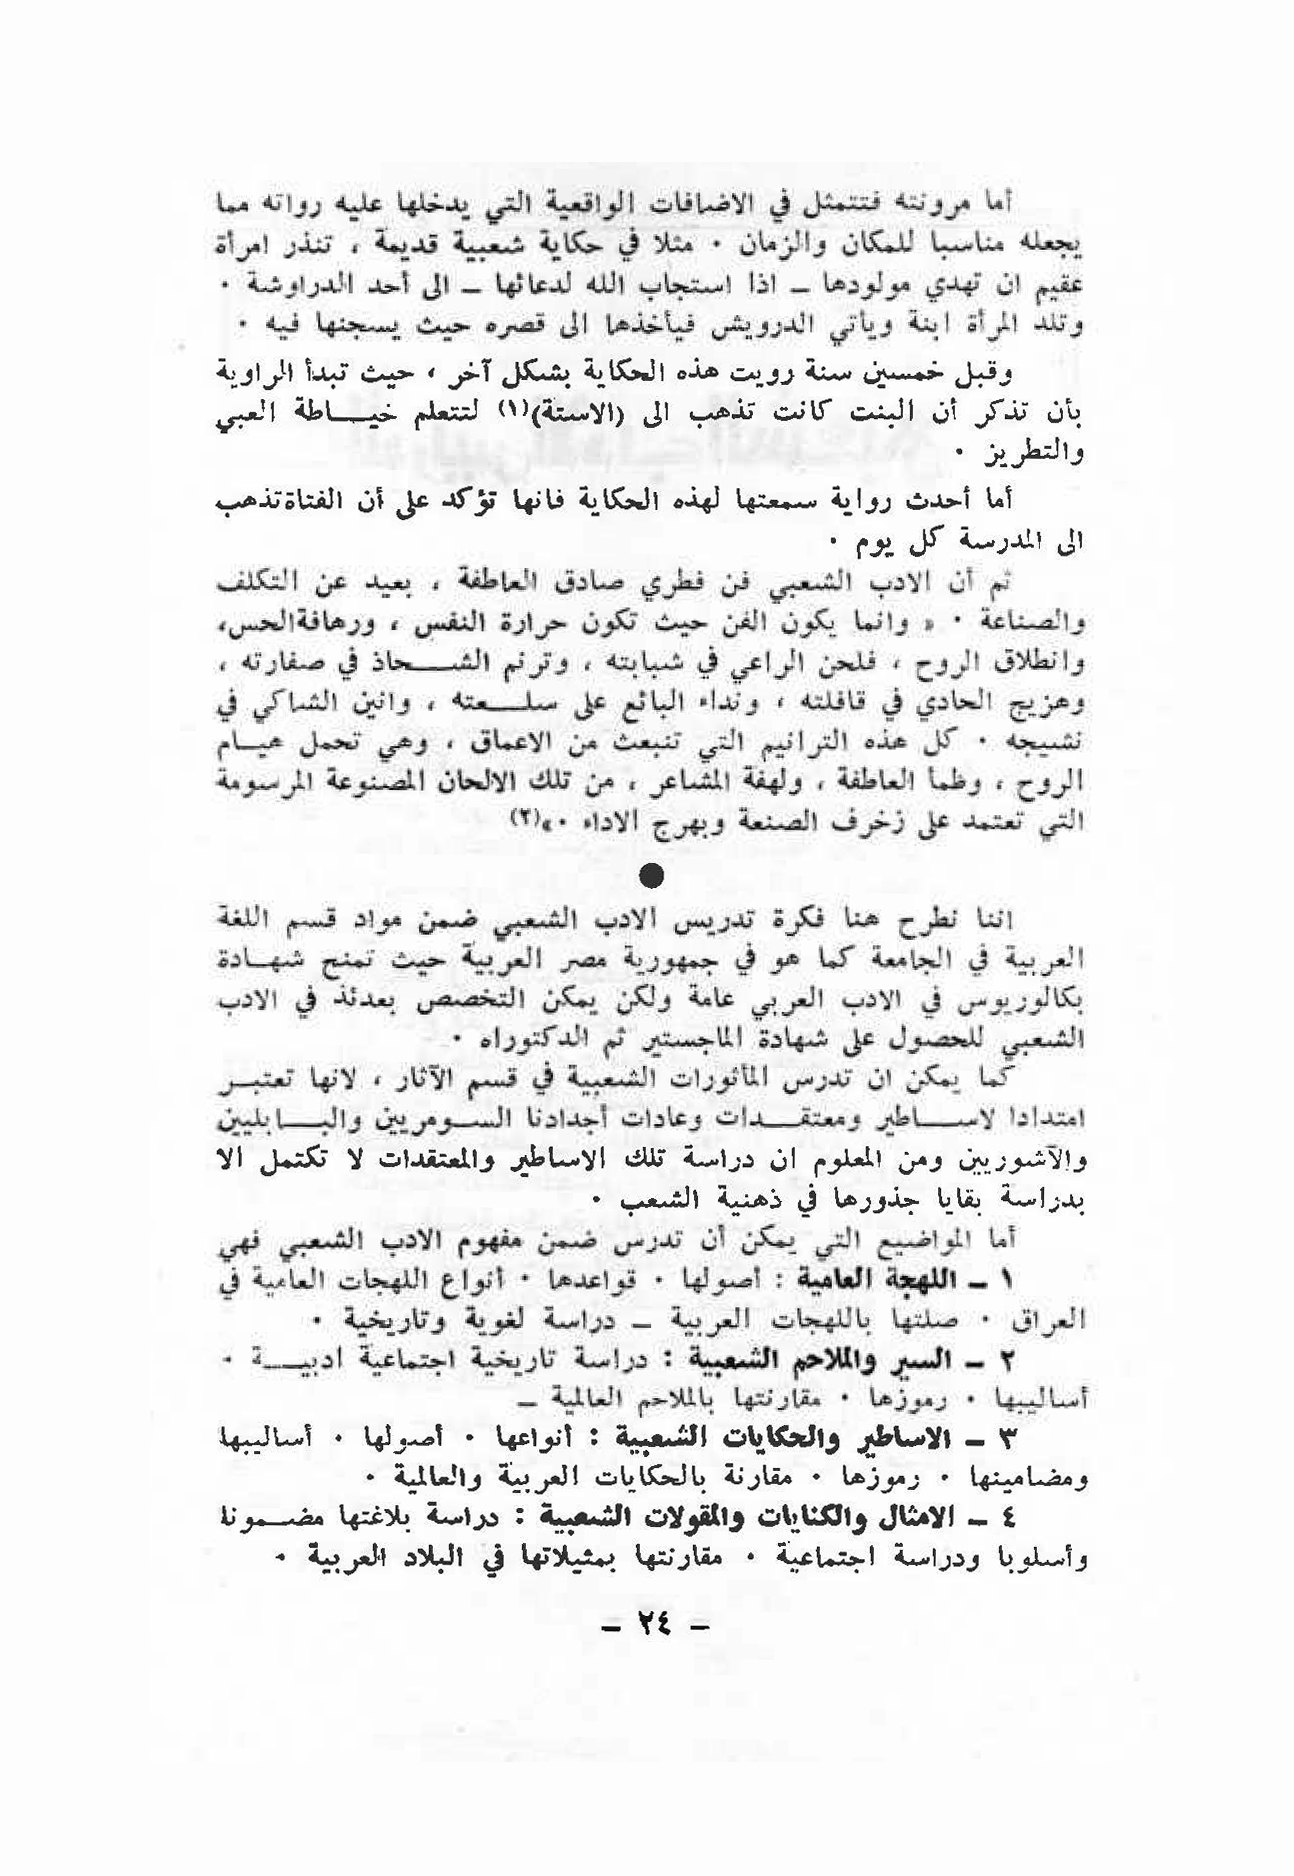 أما مرونته فتتمثل في الاضافات الواقعية التي يدخلها عليه رواته مما
يجعله مناسبا للمكان والزمان ٠ مثلا في حكاية شعبية قديمة ، تنذر امرأة
عقيم ان تهدي مولودها ــ اذا استجاب الله لدعائها ــ الى أحد الدراوشة ٠
وتلد المرأة ابنة ويأتي الدرويش فيأخذها الى قصره حيث يسجنها فيه ٠
وقبل خمسين سنة رويت هذه الحكاية بشكل آخر ، حيث تبدأ الراوية
بأن تذكر أن البنت كانت تذهب الى (الاستة)(١) لتتعلم خيـــاطة العبي
والتطريز ٠
أما أحدث رواية سمعتها لهذه الحكاية فانها تؤكد على أن الفتاةتذهب
الى المدرسة كل يوم ٠
ثم أن الادب الشعبي فن فطري صادق العاطفة ، بعيد عن التكلف
والصناعة ٠ « وانما يكون الفن حيث تكون حرارة النفس ، ورهافةالحس،
وانطلاق الروح ، فلحن الراعي في شبابته ، وترنم الشـــحاذ في صفارته ،
وهزيج الحادي في قافلته ، ونداء البائع على سلـــعته ، وانين الشاكي في
نشيجه ٠ كل هذه الترانيم التي تنبعث من الاعماق ، وهي تحمل هيــام
الروح ، وظمأ العاطفة ، ولهفة المشاعر ، من تلك الالحان المصنوعة المرسومة
التي تعتمد على زخرف الصنعة وبهرج الاداء ٠»(٢)
●
اننا نطرح هنا فكرة تدريس الادب الشعبي ضمن مواد قسم اللغة
العربية في الجامعة كما هو في جمهورية مصر العربية حيث تمنح شهــادة
بكالوريوس في الادب العربي عامة ولكن يمكن التخصص بعدئذ في الادب
الشعبي للحصول على شهادة الماجستير ثم الدكتوراه ٠
كما يمكن ان تدرس المأثورات الشعبية في قسم الآثار ، لانها تعتبــر
امتدادا لاســـاطير ومعتقـــدات وعادات أجدادنا الســومريين والبــابليين
والآشوريين ومن المعلوم ان دراسة تلك الاساطير والمعتقدات لا تكتمل الا
بدراسة بقايا جذورها في ذهنية الشعب ٠
أما المواضيع التي يمكن أن تدرس ضمن مفهوم الادب الشعبي فهي
١ ــ اللهجة العامية : أصولها ٠ قواعدها ٠ أنواع اللهجات العامية في
العراق ٠ صلتها باللهجات العربية ــ دراسة لغوية وتاريخية ٠
٢ ــ السير والملاحم الشعبية : دراسة تاريخية اجتماعية ادبيـــة ٠
أساليبها ٠ رموزها ٠ مقارنتها بالملاحم العالمية ــ
٣ ــ الاساطير والحكايات الشعبية : أنواعها ٠ أصولها ٠ أساليبها
ومضامينها ٠ رموزها ٠ مقارنة بالحكايات العربية والعالمية ٠
٤ ــ الامثال والكنايات والمقولات الشعبية : دراسة بلاغتها مضــمونا
وأسلوبا ودراسة اجتماعية ٠ مقارنتها بمثيلاتها في البلاد العربية ٠
– ٢٤ –